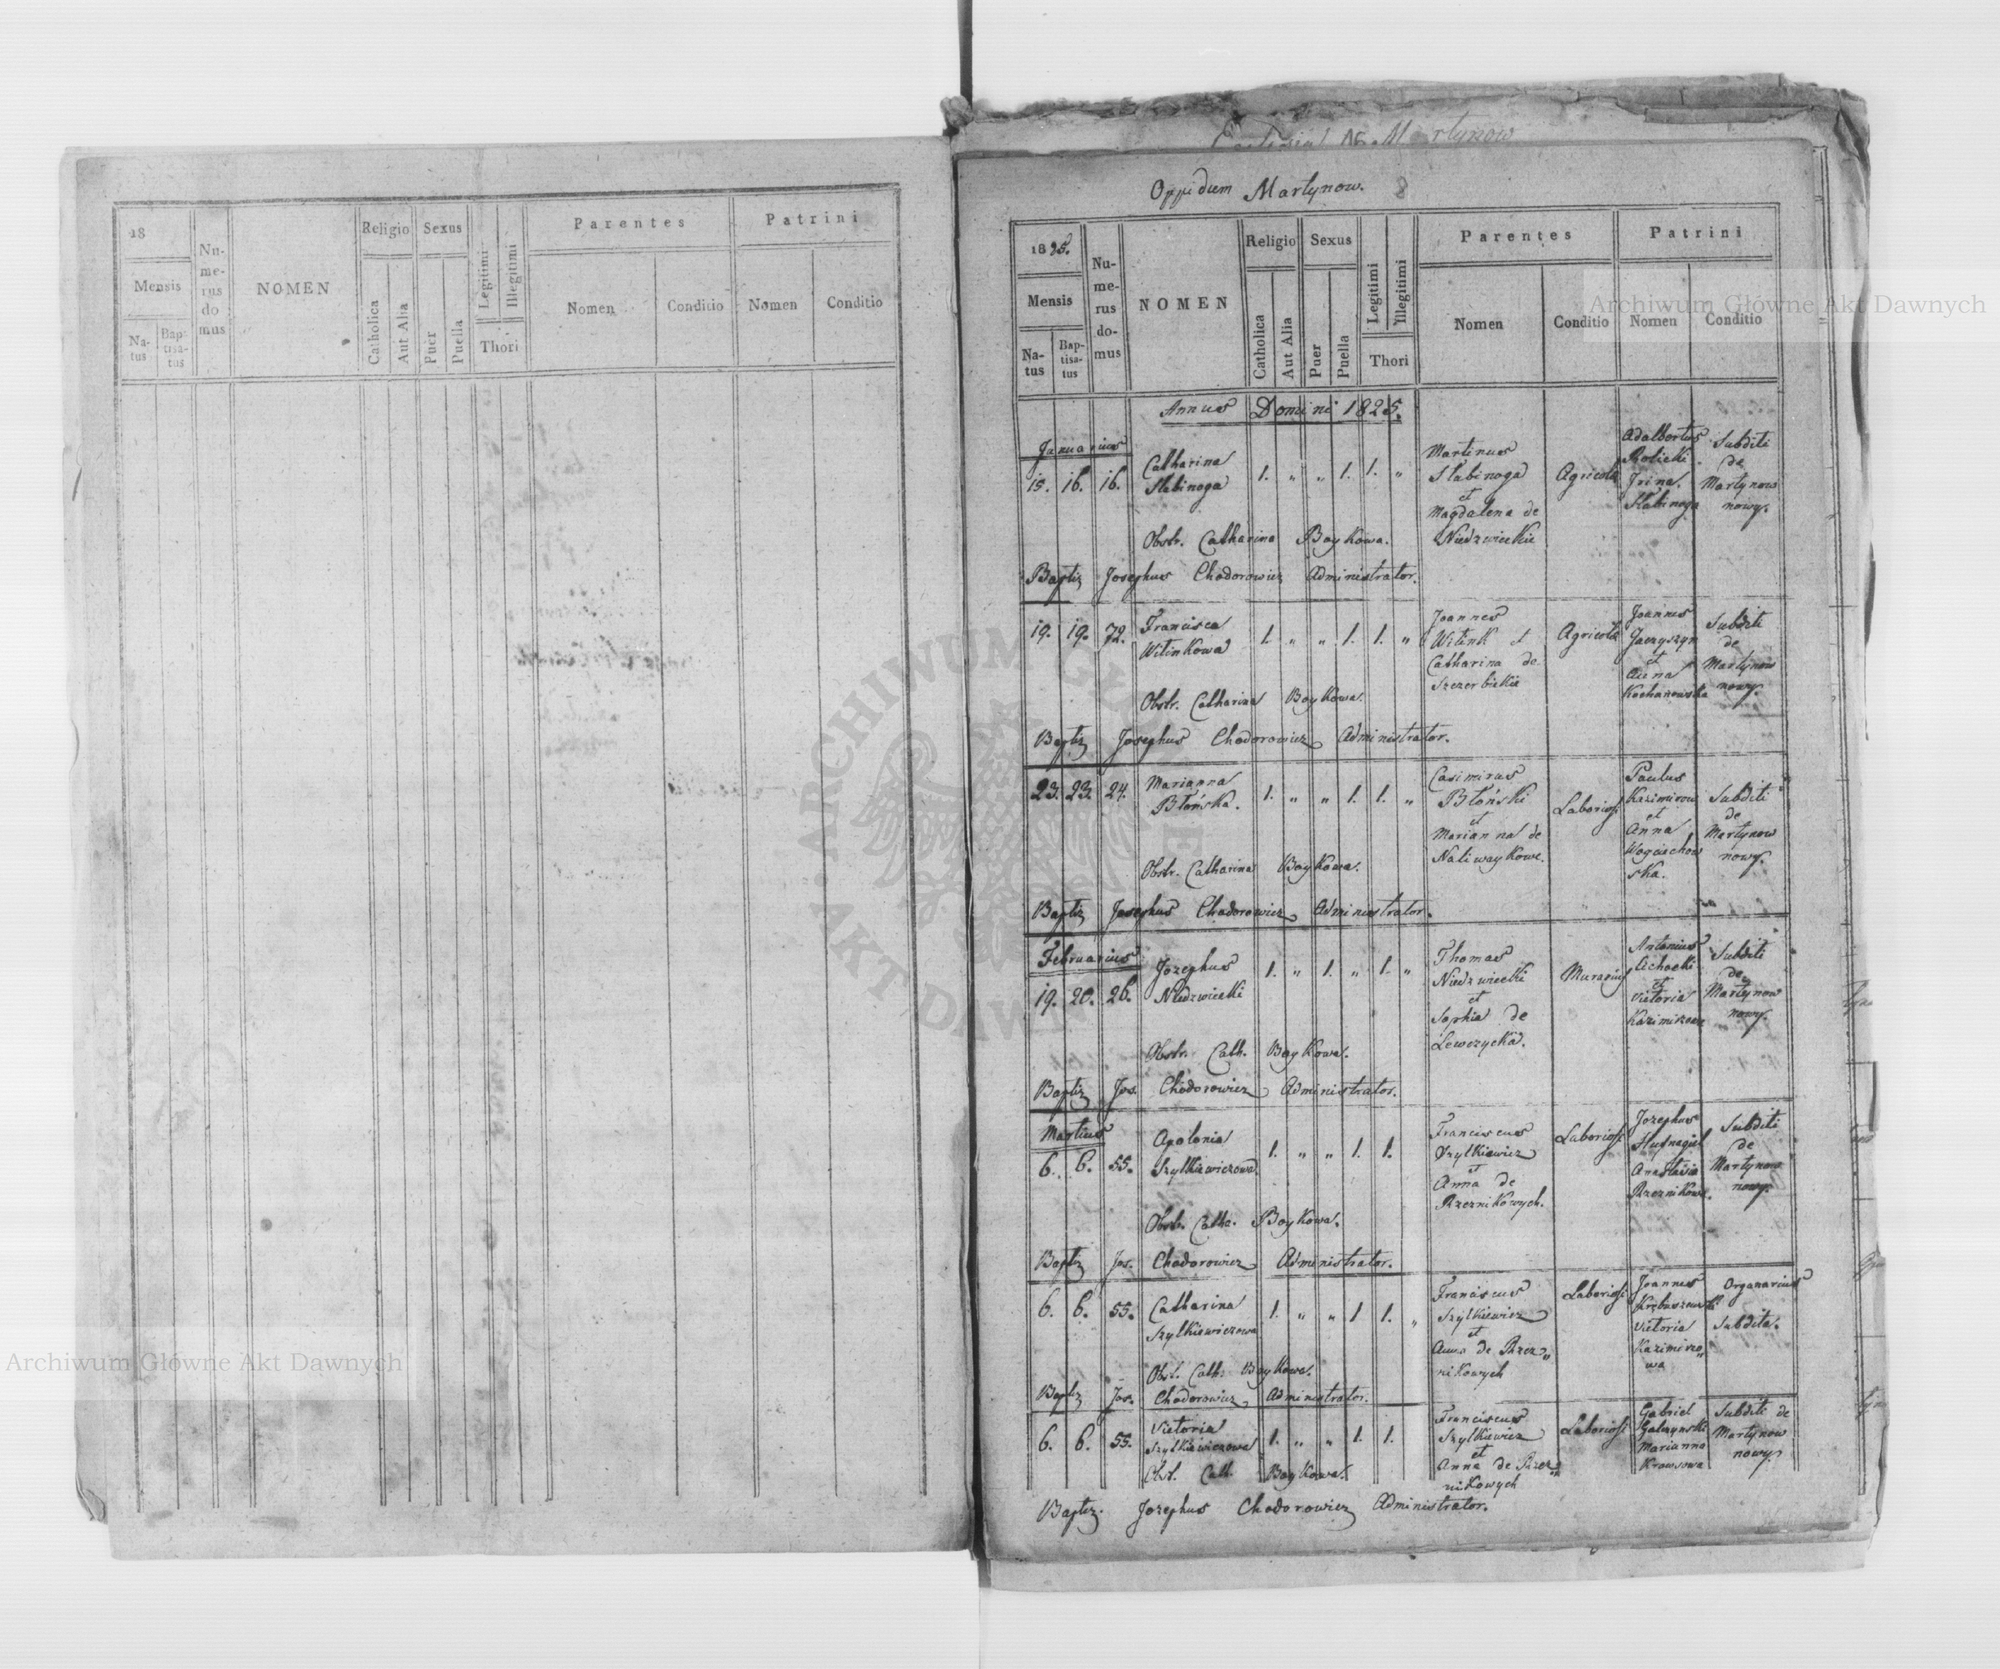 Martynow
Oppidum Martynow. 8
18
Mensis
Na-
tus
Bap-
tisa-
tus
Nu-
me-
rus
do-
mus
NOMEN
Religio
Catholica
Aut Alia
Sexus
Puer
Puella
Legitimi
Illegitimi
Thori
Parentes
Nomen
Conditio
Patrini
Nomen
Conditio
1825.
Mensis
Na-
tus
Bap-
tisa-
tus
Nu-
me-
rus
do-
mus
NOMEN
Religio
Catholica
Aut Alia
Sexus
Puer
Puella
Legitimi
Illegitimi
Thori
Parentes
Nomen
Conditio
Patrini
Nomen
Conditio
Annus Domini 1825.
Januarius
15. 16. 16.
Catharina
Słabinoga
1. „ „ 1. 1. „
Martinus
Słabinoga
et
Magdalena de
Niedzwieckie
Agricola
Adalbertus
Rolicki
Irina
Słabinoga
Subditi
de
Martynow
nowy.
Obstr. Catharina Boykowa.
Baptiz Josephus Chodorowicz Administrator.
19. 19. 72.
Francisca
Witinkowa
1. „ „ 1. 1. „
Joannes
Witink et
Catharina de
Szczerbickie
Agricola
Joannes
Jaczyszyn
et
Anna
Kochanowska
Subditi
de
Martynow
nowy.
Obstr. Catharina Boykowa.
Baptiz Josephus Chodorowicz Administrator.
23. 23. 24.
Marianna
Błońska.
1. „ „ 1. 1. „
Casimirus
Błoński
et
Marianna de
Naliwaykowe.
Laboriosi
Paulus
Kazimirow
et
Anna
Woyciechow
ska.
Subditi
de
Martynow
nowy.
Obstr. Catharina Boykowa.
Baptiz Josephus Chodorowicz Administrator.
Februarius
19. 20. 26.
Jozephus
Niedzwiecki
1. „ 1. „ 1. „
Thomas
Niedzwiecki
et
Sophia de
Lewczycka.
Murarius
Antonius
Cichocki
et
Victoria
Subditi
de
Martynow
nowy.
Obstr. Cath. Boykowa.
Baptiz Jos. Chodorowicz Administrator.
Martius
6. 6. 55.
Apolonia
Szylkiewiczowa.
1. „ „ 1. 1.
Franciscus
Szylkiewicz
et
Anna de
Rzeznikowych.
Laboriosi
Jozephus
Hufnagiel
Anastasia
Rzeznikowa.
Subditi
de
Martynow
nowy.
Obstr. Catha. Boykowa.
Baptiz Jos. Chodorowicz Administrator.
6. 6. 55.
Catharina
Szylkiewiczowa
1. „ „ 1 1. „
Franciscus
Szylkiewicz
et
Anna de Rzez„
nikowych
Laboriosi
Joannes
Victoria
Kazimirzo„
wa
Organarius
Subdita.
Obst. Cath. Boykowa.
Baptiz Jos. Chodorowicz Administrator.
6. 6. 55.
Victoria
Szylkiewiczowa
1. „ „ 1. 1.
Franciscus
Szylkiewicz
et
Anna de Rzez„
nikowych
Laboriosi
Gabriel
Galczynski
Marianna
Krawsowa
Subditi de
Martynow
nowy
Obst. Cath. Boykowa.
Baptiz. Jozephus Chodorowicz Administrator.
Archiwum Główne Akt Dawnych
Archiwum Główne Akt Dawnych
ARCHIWUM GŁÓWNE
AKT DAWNYCH